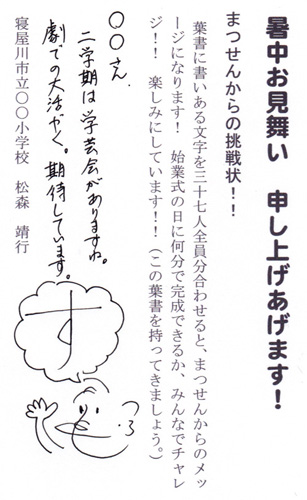 暑中お見舞い　申し上げあげます！
まつせんからの挑戦状！！
　葉書に書いある文字を三十七人全員分合わせると、まつせんからのメッ
セージになります！　始業式の日に何分で完成できるか、みんなでチャレン
ジ！！　楽しみにしています！！（この葉書を持ってきましょう。）
〇〇さん
二学期は学芸会がありますね。
劇での大活やく。期待しています。
寝屋川市立〇〇小学校　松森　靖行
す